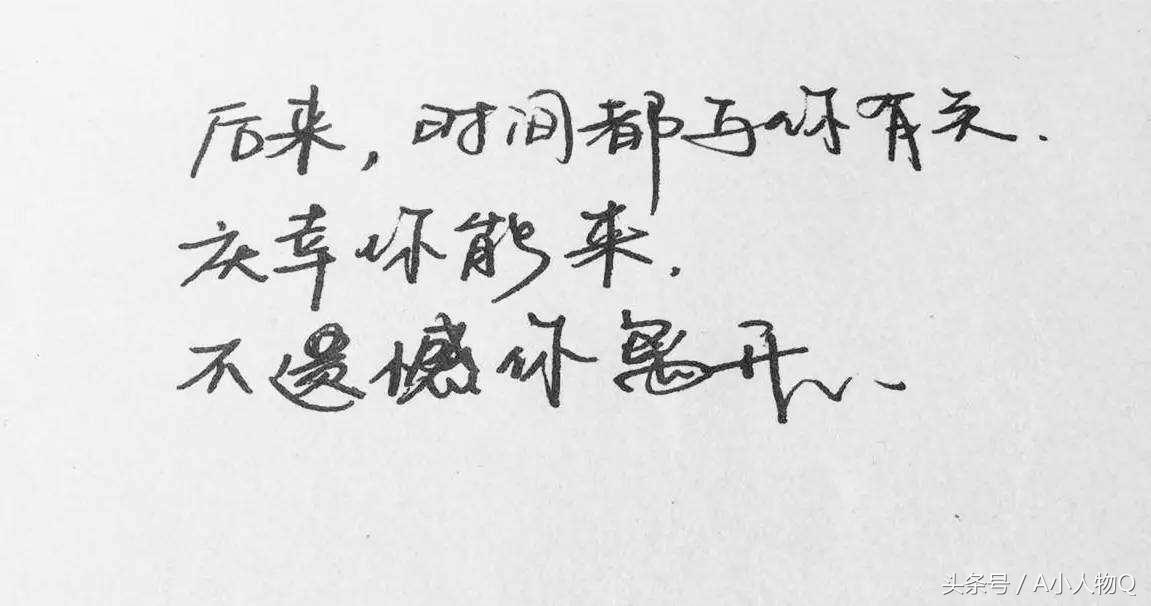 后来，时间都与你有关.
庆幸你能来.
不遗憾你离开
头条号 / A小人物Q